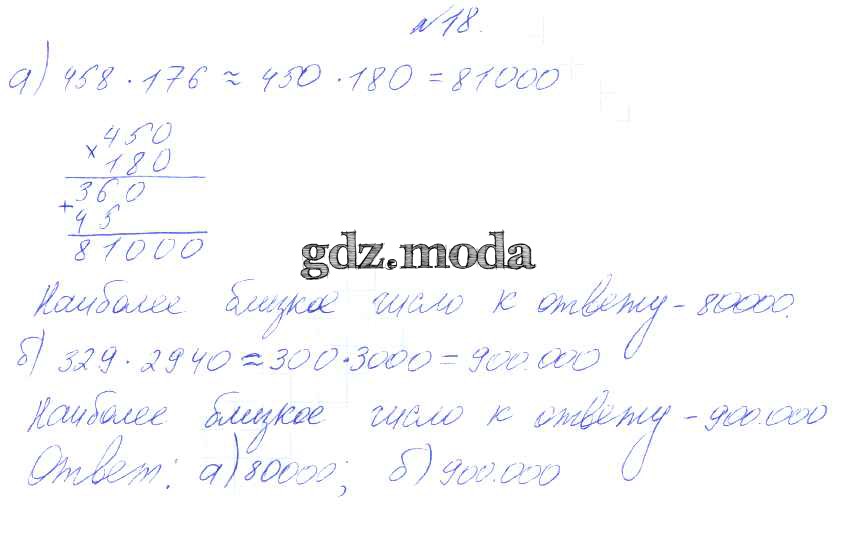 №18.
а) 458 · 176 ≈ 450 · 180 = 81000
450
×
180
360
+
45
81000
gdz.moda
Наиболее близкое число к ответу – 80000.
б) 329 · 2940 ≈ 300 · 3000 = 900.000
Наиболее близкое число к ответу – 900.000
Ответ: а) 80000; б) 900.000